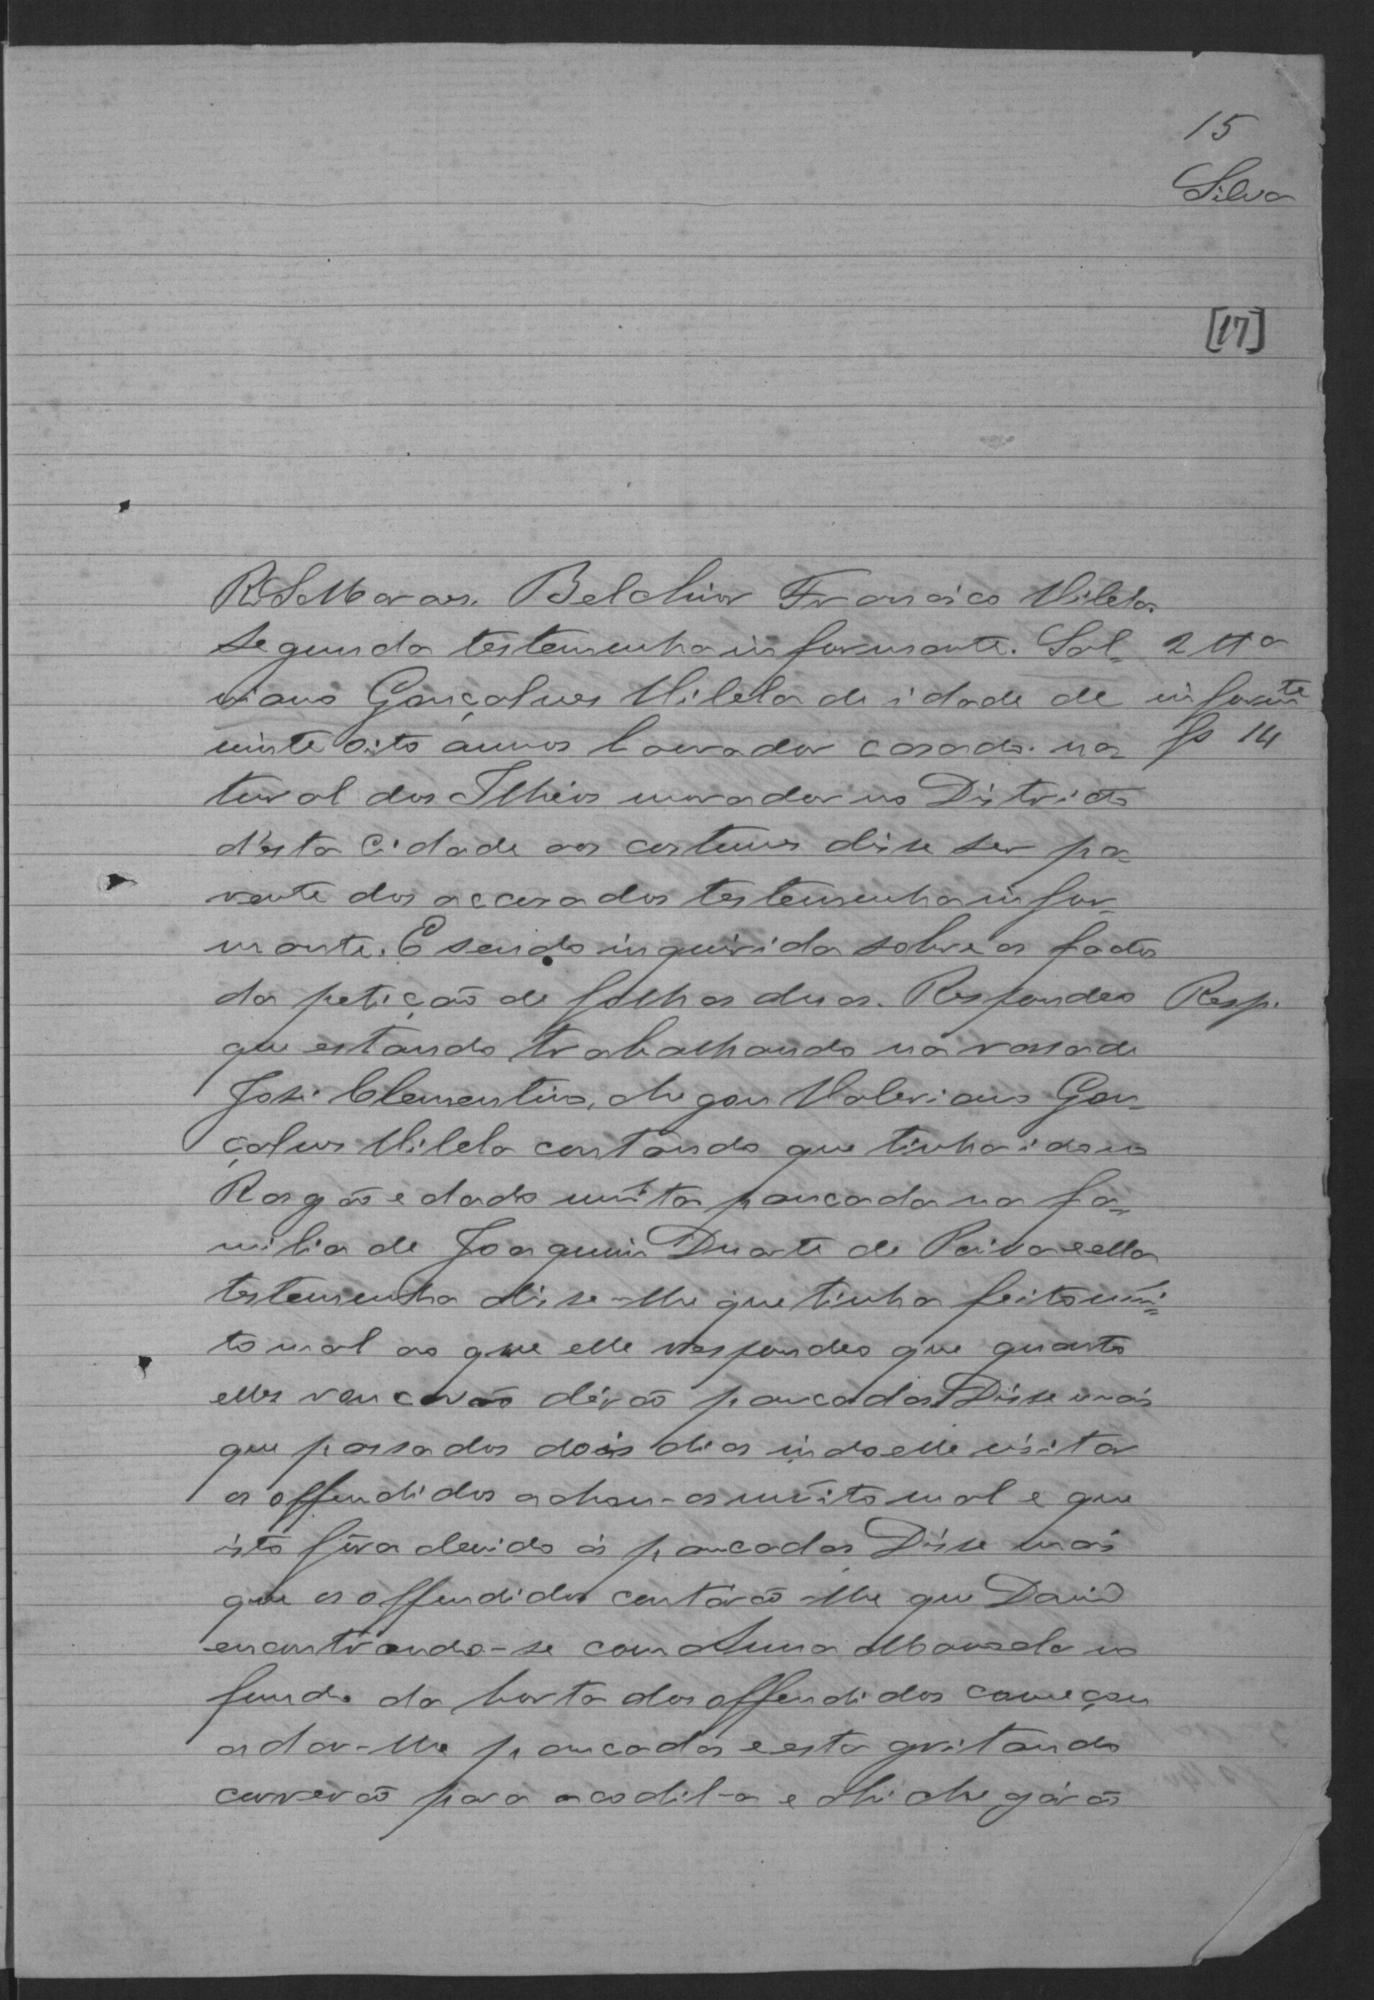 15
Silva
[17]
R S Moraes. Belchior Francisco Vilela.
Segunda testemunha informante. Sal- 2 tta
viano Gonçalves Vilela de idade de informte
vinte oito annos lavrador casado na- fs 14
tural dos Ilhéos morador no Districto
d'esta Cidade aos costumes disse ser pa-
rente dos accusados testemunha infor-
mante. E sendo inquirida sobre os factos
da petição de folhas duas. Respondeo Resp.
que estando trabalhando na rossa de
José Clementino, chegou Valeriano Gon-
çalves Vilela contando que tinha ido no
Rasgão e dado muita pancada na fa-
milia de Joaquim Duarte de Paiva e ella
testemunha disse-lhe que tinha feito mui-
to mal ao que elle respondeo que quanto
elles derão pancadas Disse mais
que passados dois dias indo elle visitar
os offendidos achou-os muito mal e que
isto fôra devido ás pancadas Disse mais
que os offendidos contárão-lhe que David
encontrando-se com Anna Manoela no
fundo da horta dos offendidos começou
a dar-lhe pancadas e esta gritando
correrão para acodil-a e ahi chegárão